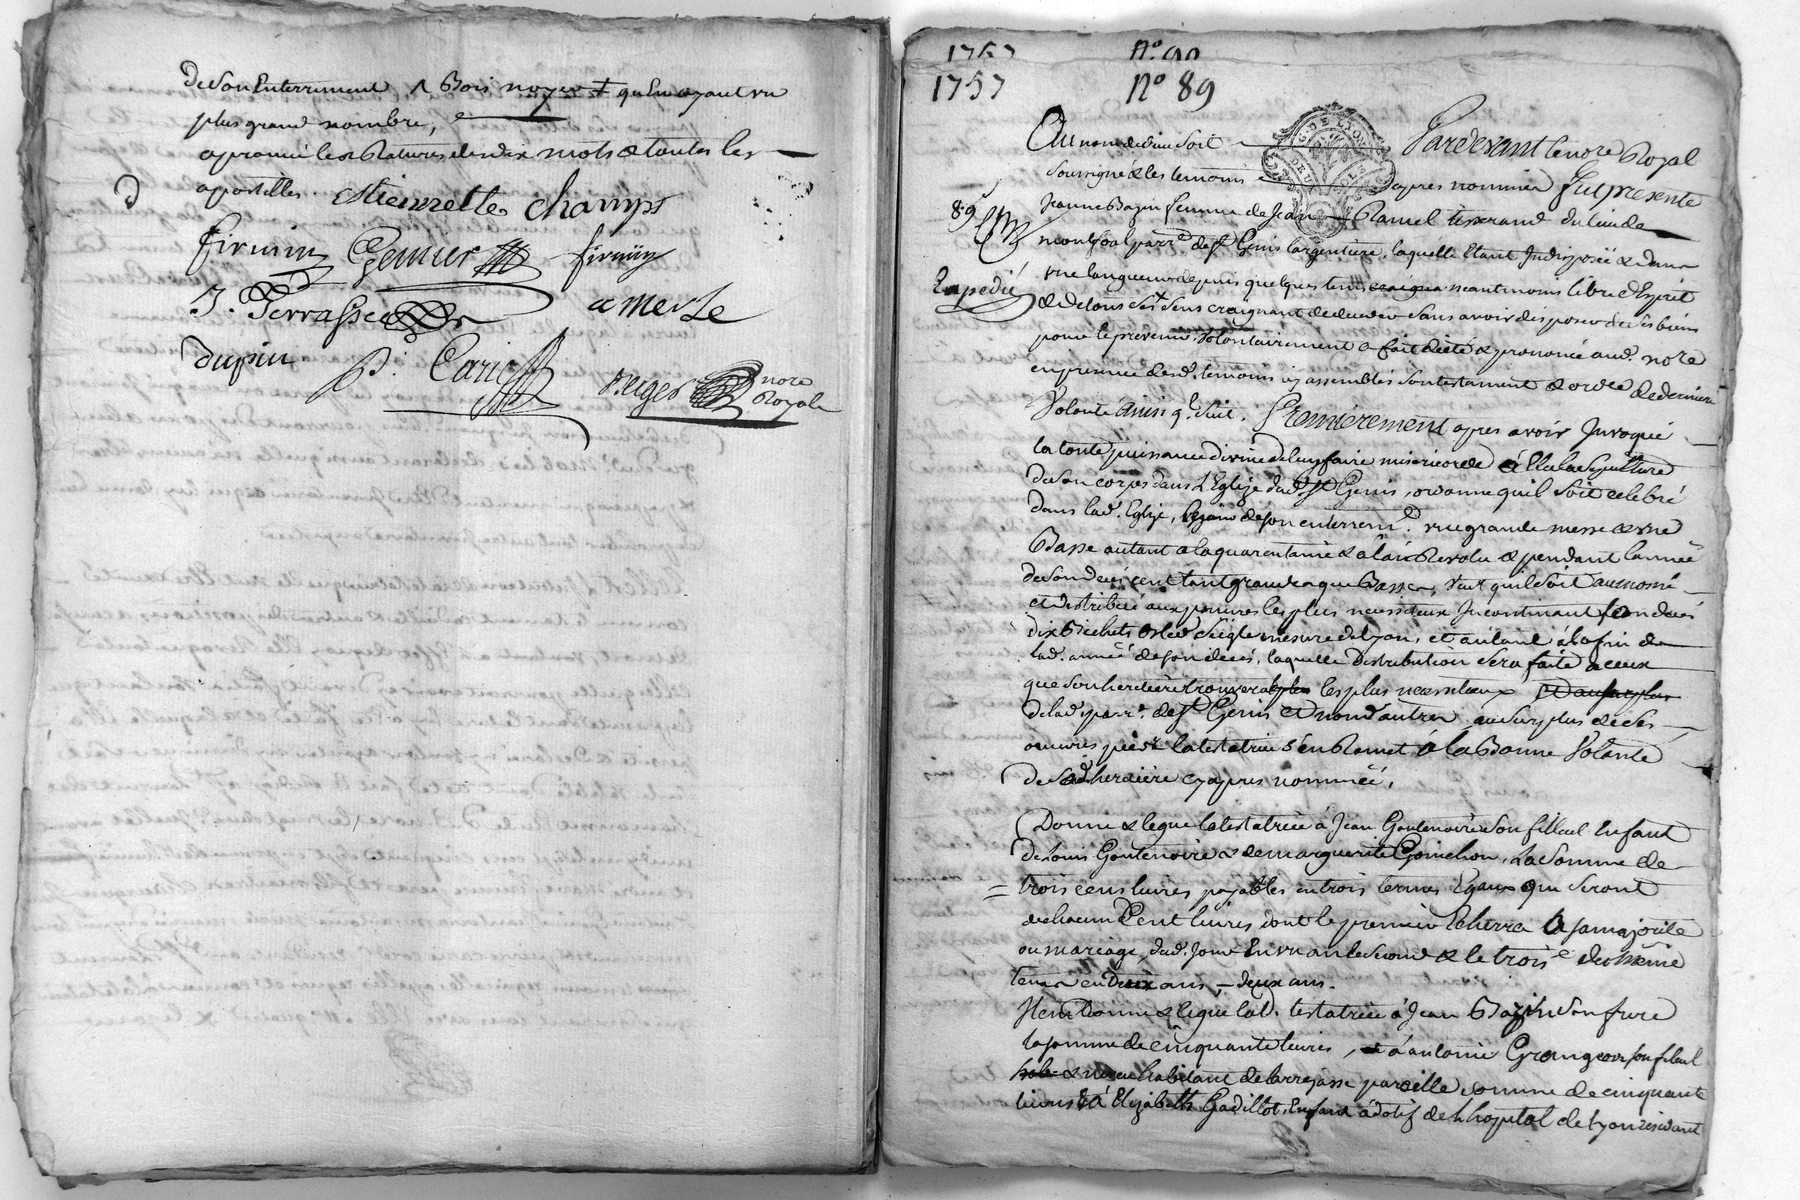 de son Enterrement Bois noyer ‡ qu'en ayant un
plus grand nombre,
aprouvé les Ratures de dix mots & toutes les
apostilles. Champs
firmin Genier firmin
J. Terrasse a merle
dupin P. Caric
Verger nore Royale
1757 n° 90
1757 n° 89
Au nom de dieu soit Pardevant le nore Royal
soussigné & les temoins apres nommés fut presente
89 Jeanne Bazin femme de Jean Ramel tisserand du lieu de
montfool parr. de St Genis largentiere, laquelle Etant Indisposée & dans
Expedié une langueur depuis quelques tems craigna neantmoins libre d'Esprit
& de tous ses sens craignant de deceder sans avoir disposer de ses biens
pour le prevenir, volontairement a fait dicté & prononcé aud. nore
en presence desd. temoins icy assemblés son testament & ordre de derniere
volonté ainsi q. suit. Premierement apres avoir Invoqué
la toute puissance divine de luy faire misericorde Elu la sepulture
de son corps dans L'Eglize dud. St Genis, ordonne quil soit celebré
dans lad. Eglize, le jour de son enterrem. une grande messe & une
Basse autant a la quarantaine & a l'an Revolu & pendant l'année
de son deces cent tant grandes que Basses, veut quil soit aumoné
et distribué aux pauvres les plus necessiteux Incontinant son deces
dix Bichets Bled seigle mesure de Lyon, et autant à la fin de
lad. année de son deces, laquelle distribution sera faite a ceux
que son heritiere trouvera les plus necessiteux
de lad. parr. de St Genis et non d'autres au surplus de ses
oeuvres pies la testatrice s'en Remet à la Bonne Volonté
de sad. heritiere cy apres nommée.
Donne & legue la testatrice à Jean Goutenoire son filleul Enfant
de Louis Goutenoire & de marguerite Goinchon, La somme de
trois cens livres payables en trois termes Egaux qui seront
de chacun Cent livres dont le premier Echerra à sa majorité
ou mariage, dud. Jour En un an le second & le trois.e
deux ans.
Item donne & legue lad. testatrice à Jean Bazin son frere
la somme de cinquante livres, à antoine Grangeon son filleul
& neveu habitant de Larrajasse pareille somme de cinquante
livres Et à Elizabeth Gadillot, Enfant adotif de l'hopital de Lyon residant